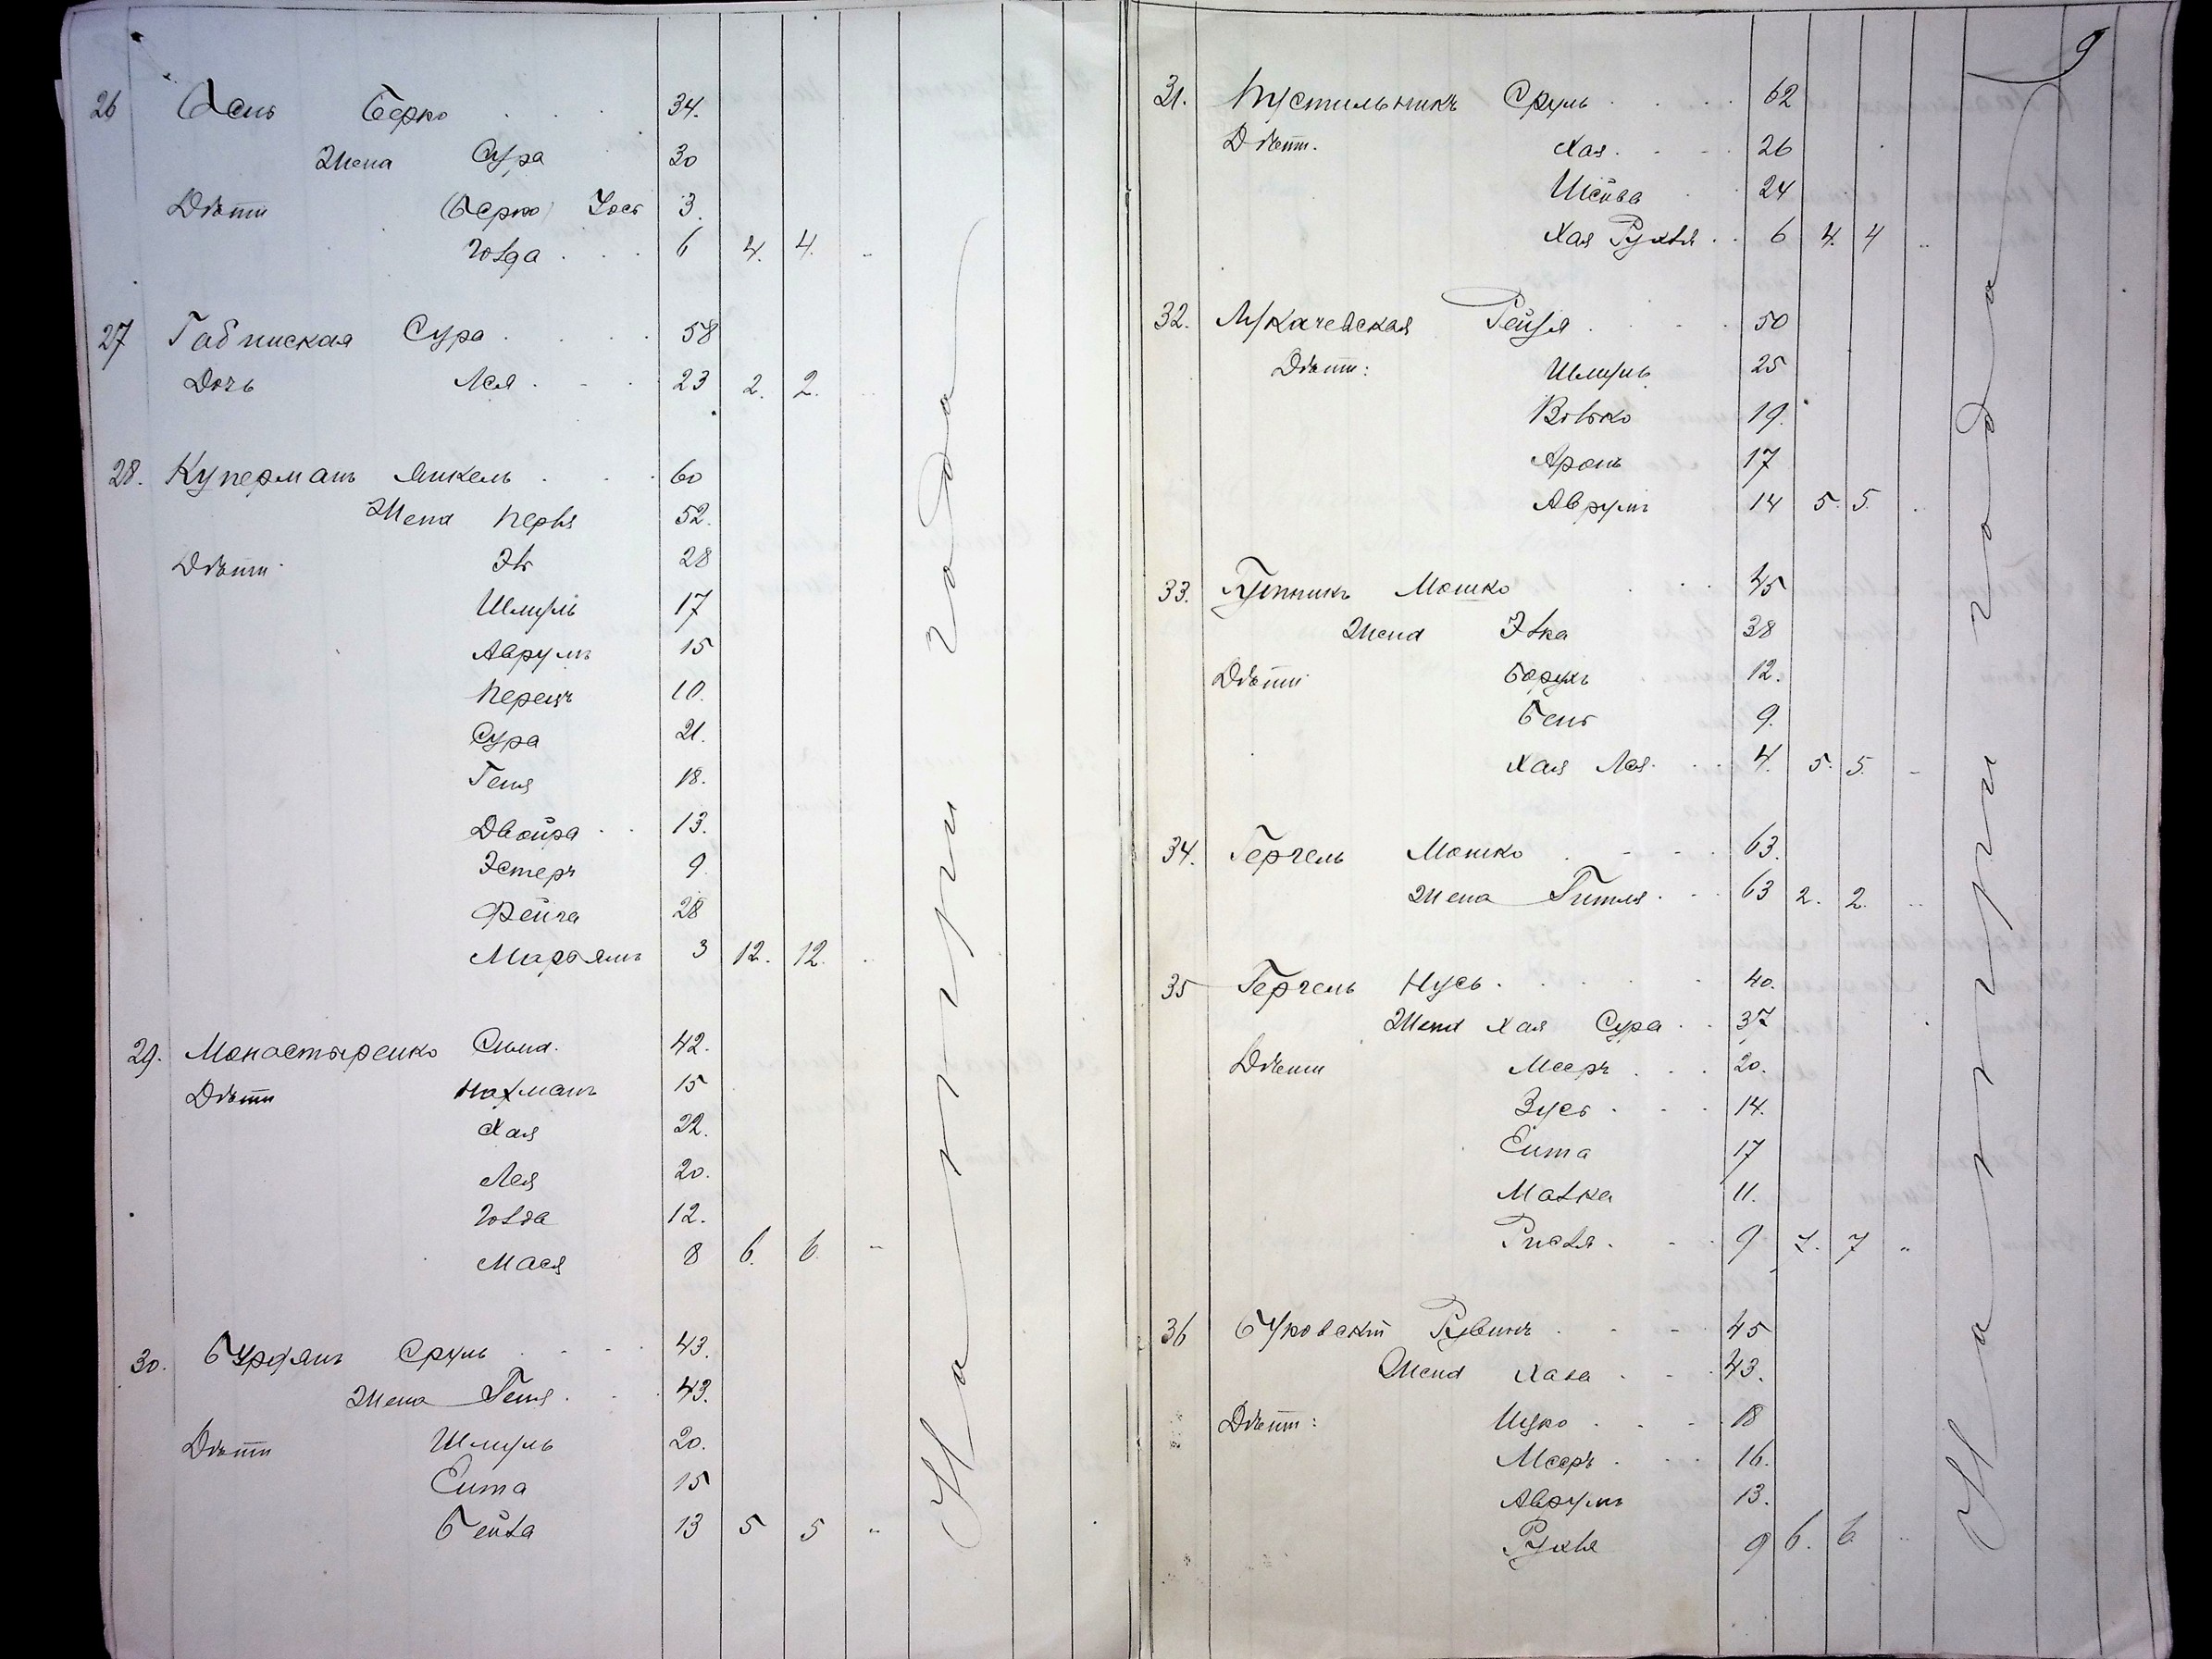 26 Бень Берко . . . 34.
Жена Сура . 30
Дѣти (Берко) Іось 3.
Гольда . . . 6 4. 4. "
27 Сура . . . . 58
Дочь Лея . - . 23 2. 2. "
28. Куперманъ Янкель . . . 60
Жена Перля 52.
Дѣти. 28
Шмуль 17
Аврумъ 15
Перецъ 10.
Сура 21.
Геня 18.
Двойра . . 13.
Эстеръ 9
Фейга 28
Марьямъ 3 12. 12. "
29. Монастыренко Сима. 42.
Дѣти Нахманъ 15
Хая 22.
Лея 20.
Гольда 12.
Мася 8 6. 6. "
30. Бурдянъ Сруль . - - . 43.
Жена Геня . . 43.
Дѣти Шмуль 20.
Ента 15
Бейла 13 5 5 "
9
31. Пустыльникъ Сруль . . . . 62
Дѣти. Хая . - . 26
Шейва 24
Хая Рухля . . 6 4. 4 "
32. Мукачевская Рейзя . . . 50
Дѣти: Шмуль 25
Волько 19.
Аронъ 17
Аврумъ 14 5. 5. "
33. Мошко . . . 45
Жена Элка 38
Дѣти Борухъ . 12.
Бень 9.
Хая Лея . . . 4. 5. 5. "
34. Гергель Мошко . - - . 63.
Жена Гитля . . . 63 2. 2. "
35 Гергель Нусь . . . . 40.
Жена Хая Сура . . 37
Дѣти Мееръ . . . 20.
Зусь . . . 14.
Ента 17
Малка 11.
Рисля . - . 9 7. 7 "
36 Буковскій Рувинъ . - - . 45
Жена Хава . . . 43.
Дѣти: Ицко . . - . 18
Мееръ . . . 16.
Аврумъ 13.
Рухля 9 6. 6 "